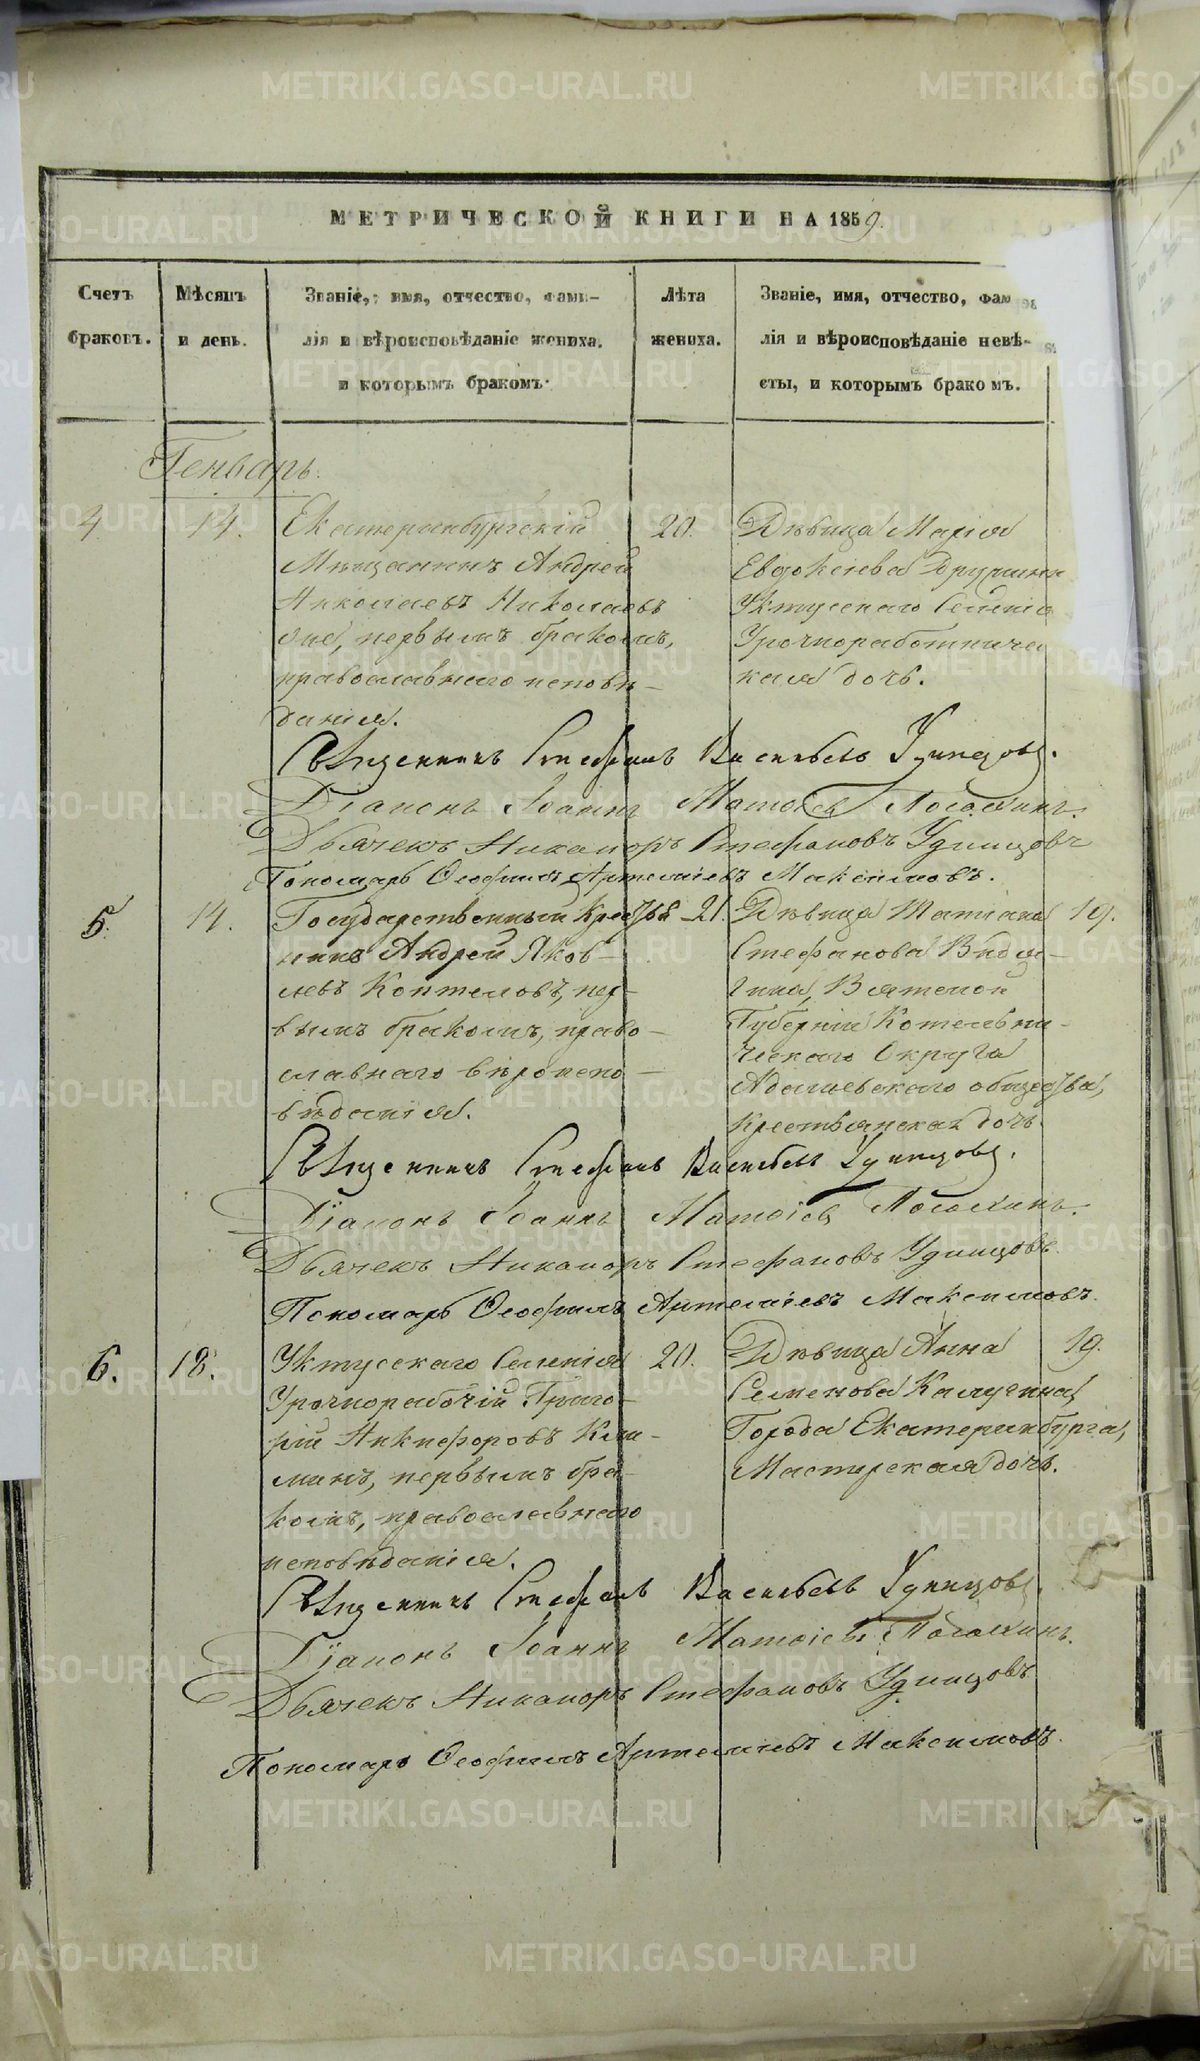 МЕТРИЧЕСКОЙ КНИГИ НА 1859.
Счетъ браковъ.
Мѣсяцъ и день.
Званіе, имя, отчество, фами-
лія и вѣроисповѣданіе жениха.
и которымъ бракомъ.
Лѣта жениха.
Званіе, имя, отчество, фам
лія и вѣроисповѣданіе невѣ-
сты, и которымъ бракомъ.
Генварь.
4
14.
Екатеринбургскій
Мѣщанинъ Андрей
Николаевъ
первымъ бракомъ,
православнаго исповѣ-
данія.
20.
Дѣвица Марія
Евдокіева
Уктусскаго Селенія
Урочноработниче
ская дочь.
Священникъ Стефанъ Васильевъ Удинцовъ.
Діаконъ Іоаннъ Матѳіевъ
Дьячекъ Никаноръ Стефановъ Удинцовъ
Пономарь Ѳеофилъ Артеміевъ Максимовъ.
5.
14.
Государственный Кресть
нинъ Андрей Яков-
левъ Коптеловъ, пер-
вымъ бракомъ, право-
славнаго вѣроиспо-
вѣданія.
21.
Дѣвица Татіана
Стефанова
Вятской
Губерніи Котельни-
ческаго Округа
Адашевскаго общества,
Крестьянская дочь.
19.
Священникъ Стефанъ Васильевъ Удинцовъ.
Діаконъ Іоаннъ Матѳіевъ
Дьячекъ Никаноръ Стефановъ Удинцовъ.
Пономарь Ѳеофилъ Артеміевъ Максимовъ.
6.
18.
Уктусскаго Селенія
Урочнорабочій Григо-
рій Никифоровъ
первымъ бра-
комъ, православнаго
исповѣданія.
20.
Дѣвица Анна
Семенова Калугина,
Города Екатеринбурга,
Мастерская дочь.
19.
Священникъ Стефанъ Васильевъ Удинцовъ.
Діаконъ Іоаннъ Матѳіевъ
Дьячекъ Никаноръ Стефановъ Удинцовъ
Пономарь Ѳеофилъ Артеміевъ Максимовъ.
METRIKI.GASO-URAL.RU